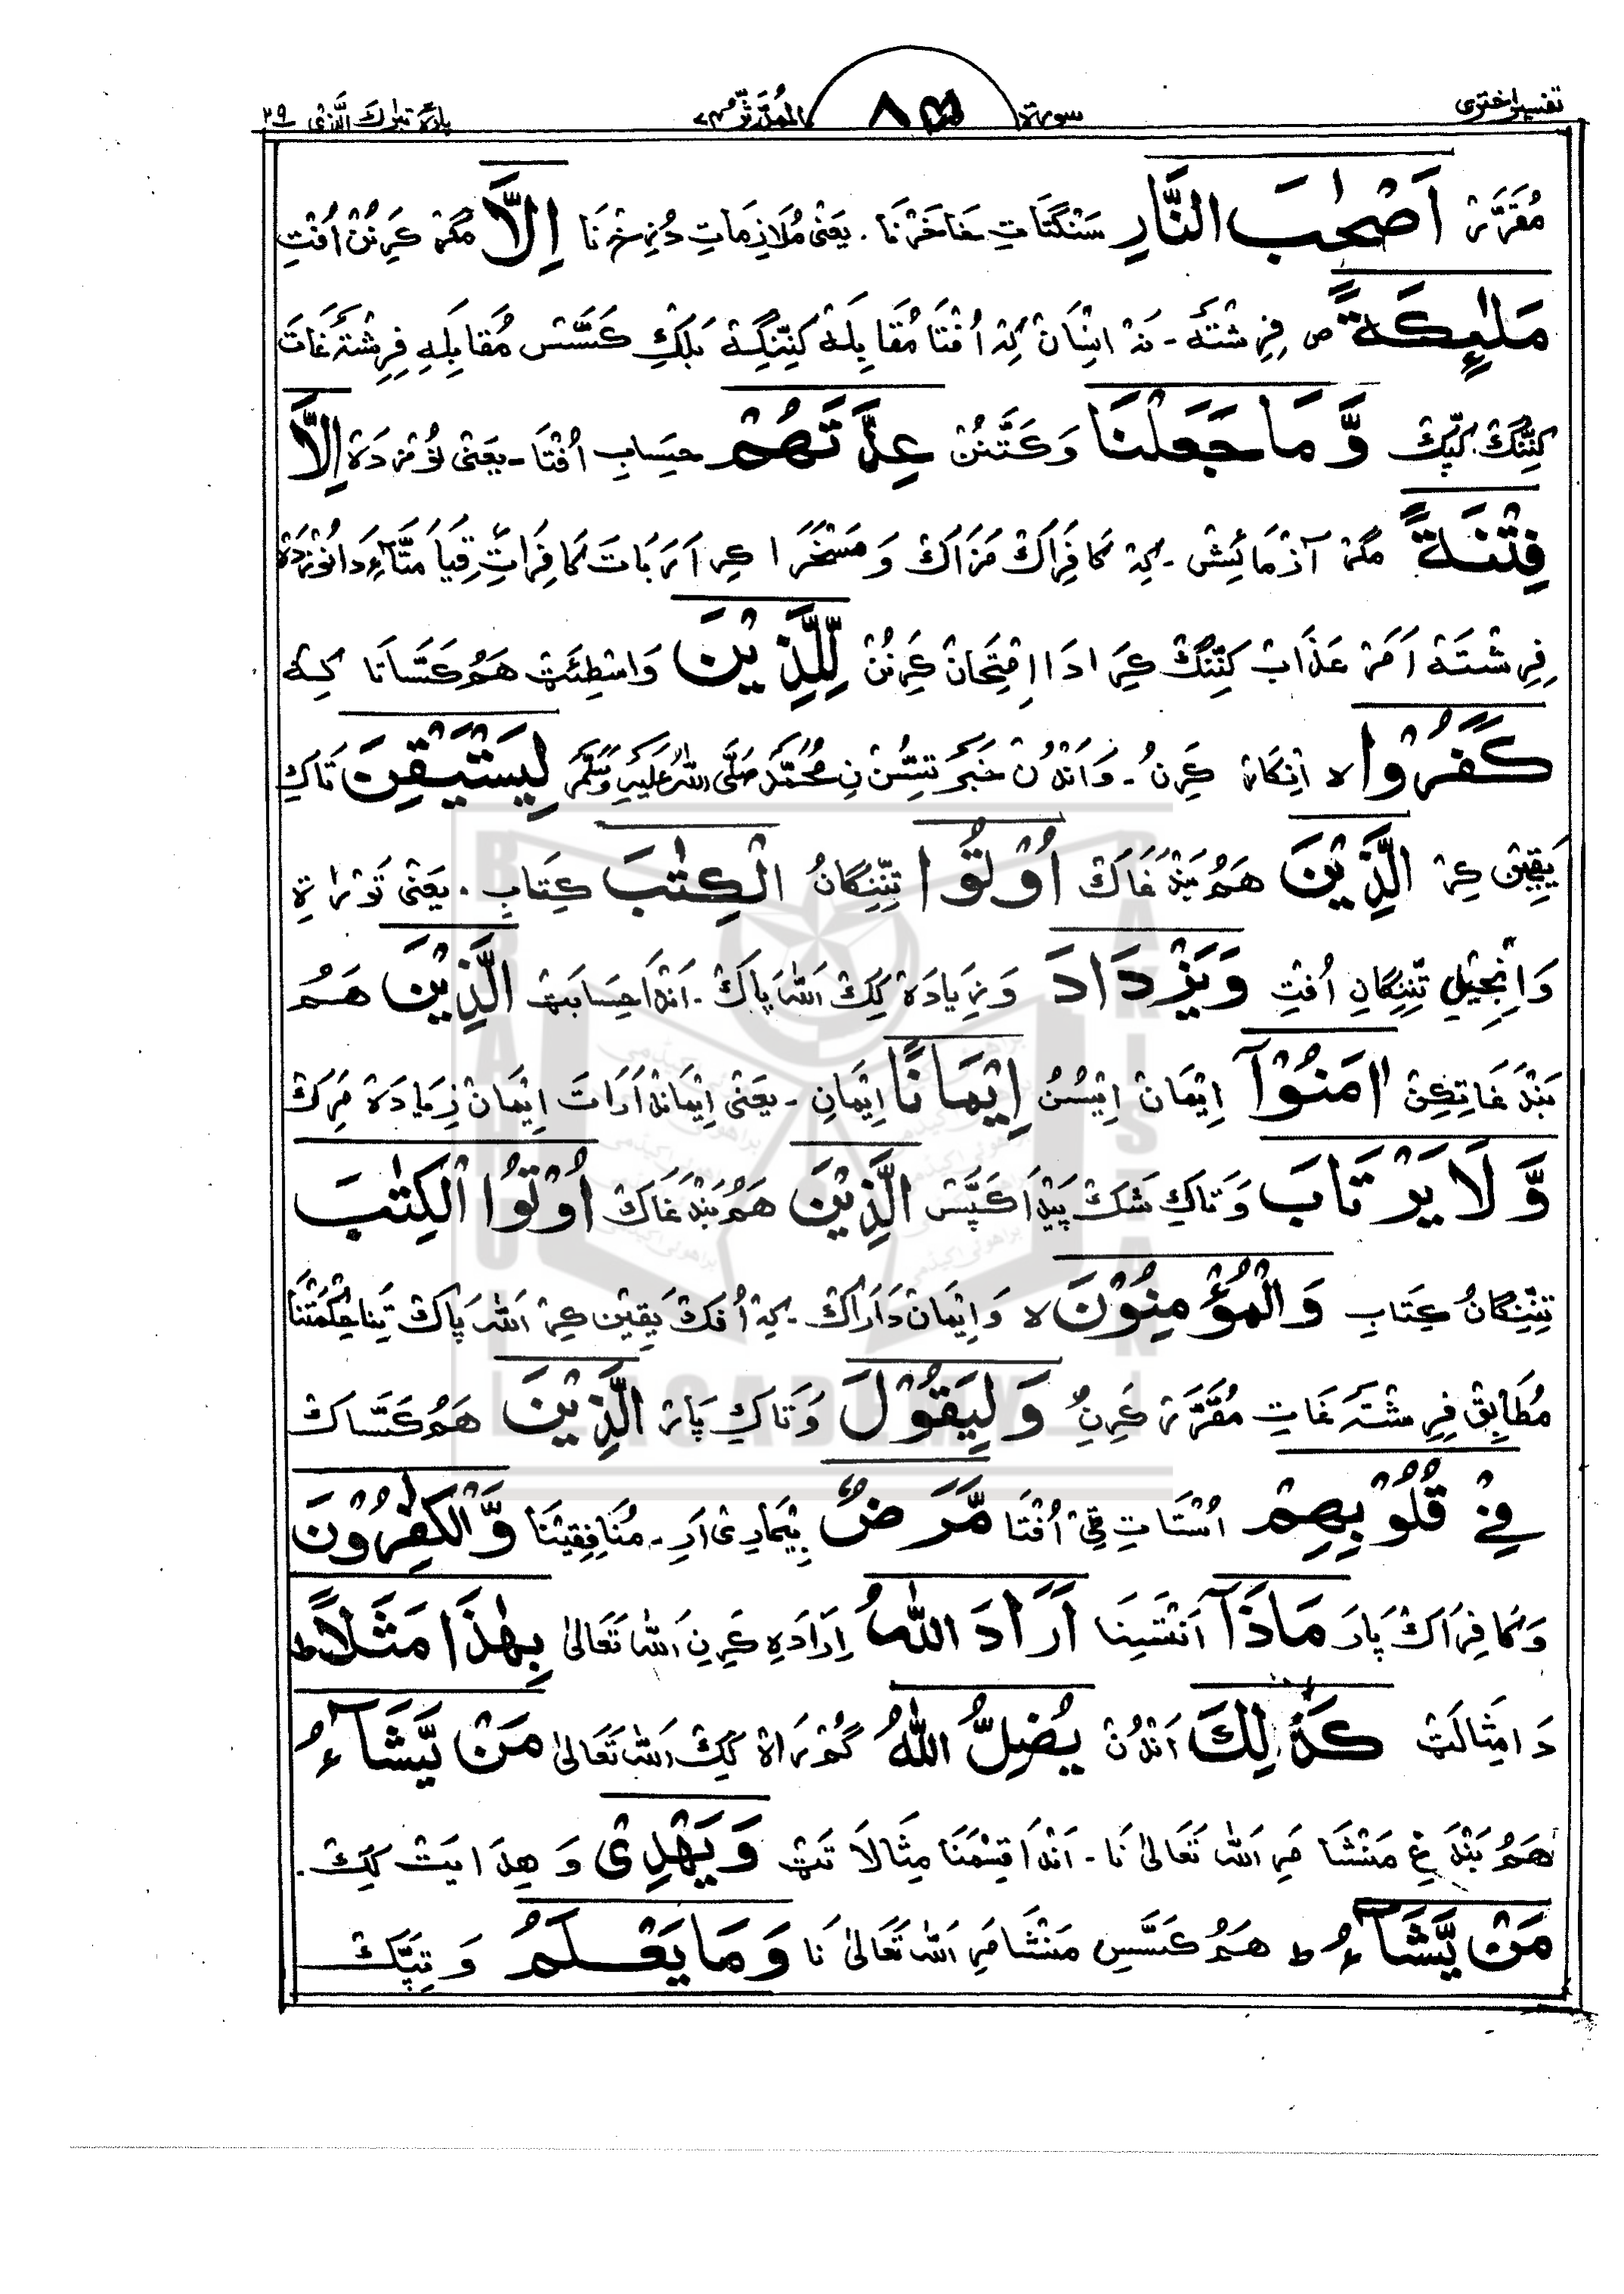 تفسیر اختری سورة ٨٥ المدّثّر ٧٤ پارہ تبٰرك الّذی ٢٩
مُقَرَّر اَصْحٰبَ النَّارِ سَنْگَتَاتِ خَاخَرْنَا . یَعْنٰی مُلَازِمَاتِ دُزخ نَا اِلَّا مَگر کَرِنُن اُفْتِ
مَلٰٓئِكَةً ص فِرِشْتَہ - نَہ اِنْسَان کِہ اُفْتَا مُقَابِلَہ کَنِنْگِہ بَلْکِ کَسَّس مُقَابِلَہِ فِرِشْتَہ غَاتَ
کَنِنْگ کپّک وَّمَا جَعَلْنَا وَ کَتَّنُن عِدَّتَهُمْ حِسَابِ اُفْتَا - یَعْنٰی نُوْزدَہ اِلَّا
فِتْنَةً مَگر آزْمَائِش - کہ کَافِرَاک مَزَاک وَ مَسْخَرَا کِر اَرَبَاتَ کَافِرَاتِ قِیَامَتَّاء دَا نُوْزدَہ
فِرِشْتَہ اَمَر عَذَاب کَنِنْگ کِرَ ادَا اِمْتِحَان کَرِنُن لِّلَّذِیْنَ وَاسْطِئَٹ هَمُ کَسَّاتَا کِہ
كَفَرُوْا لا اِنْکَار کَرِنُ - وَ اَنْدُن خَبَر تِسُّن نِ مُحَمَّد صَلَّی اللّٰہُ عَلَیْہِ وَسَلَّمَ لِیَسْتَیْقِنَ تَاکِ
یَقِیْن کِر الَّذِیْنَ هَمُ بَنْدَغَاک اُوْتُوا تِنِنْگَانُ الْكِتٰبَ کِتَابِ . یَعْنٰی تَوْرَاةِ
وَ اِنْجِیْلِ تِنِنْگَانِ اُفْتِ وَیَزْدَادَ وَ زِیَادَہ کِک اَللّٰہ پَاک - اَنْدَا حِسَابَٹ الَّذِیْنَ هَمُ
بَنْدَغَاتِکِن اٰمَنُوْۤا اِیْمَان اِیْسُن اِیْمَانًا اِیْمَانِ - یَعْنٰی اِیْمَانْدَارَاتَ اِیْمَان زِیَادَہ مَرِک
وَّلَا یَرْتَابَ وَ تَاکِ شَک پَیْدَا کَپَّس الَّذِیْنَ هَمُ بَنْدَغَاک اُوْتُوا الْكِتٰبَ
تِنِنْگَانُ کِتَابِ وَالْمُؤْمِنُوْنَ لا وَ اِیْمَان دَارَاک - کِہ اُفک یَقِیْن کِر اَللّٰہ پَاک تِنَا حِکْمَتْنَا
مُطَابِق فِرِشْتَہ غَاتِ مُقَرَّر کَرِنُ وَلِیَقُوْلَ وَ تَاکِ پَار الَّذِیْنَ هَمُ کَسَّاک
فِیْ قُلُوْبِهِمْ اُسْتَاتِ ٹی اُفْتَا مَّرَضٌ بِیْمَارِی اَرِ - مُنَافِقِیْنَا وَّالْكٰفِرُوْنَ
وَ کَافِرَاک پَارَ مَاذَاۤ اَنْتَسِنَا اَرَادَ اللّٰهُ اِرَادَہِ کَرِن اَللّٰہ تَعَالیٰ بِهٰذَا مَثَلًا ط
دَا مِثَالَٹ كَذٰلِكَ اَنْدُن یُضِلُّ اللّٰهُ گُمْرَاہ کِک اَللّٰہ تَعَالیٰ مَنْ یَّشَآءُ
هَمُ بَنْدَغِ مَنْشَا مَرِ اَللّٰہ تَعَالیٰ نَا - اَنْدَا قِسْمَنَا مِثَالَاتَٹ وَیَهْدِیْ وَ هِدَایَت کِک .
مَنْ یَّشَآءُ ط هَمُ کَسَّسِ مَنْشَا مَرِ اَللّٰہ تَعَالیٰ نَا وَمَا یَعْلَمُ وَ تِپَّک
BRAHUI ACADEMY PAKISTAN